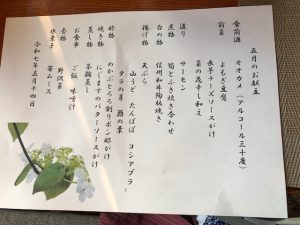 五月のお献立
食前酒　オオカメ（アルコール三十度）
前菜　よもぎ豆腐
長芋チーズソースがけ
菜の花辛し和え
造り　サーモン
煮物　筍とふき炊き合わせ
台の物　信州和牛陶板焼き
揚げ物　天ぷら
山うど　たんぽぽ　コシアブラ
タラの芽　鶏の巣
酢物　めかぶとろろ割りポン酢がけ
焼き物　にじますのバターソースがけ
蒸し物　茶碗蒸し
お食事　ご飯　味噌汁
香物　野沢菜
水菓子　苺ムース
令和七年五月十四日